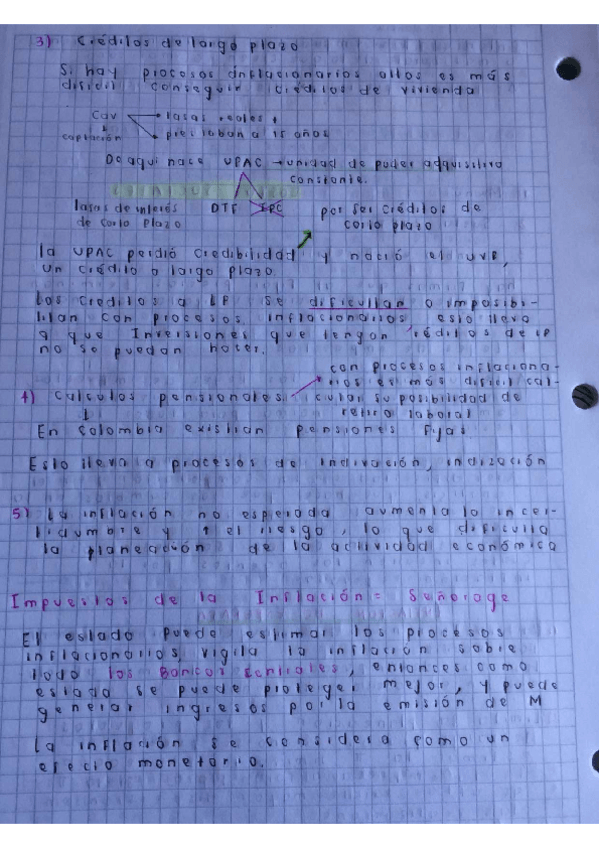 3) Créditos de largo plazo
Si hay procesos inflacionarios altos es más
dificil conseguir créditos de vivienda
Cav → tasas reales +
captación → prestaban a 15 años
De aqui nace UPAC → unidad de poder adquisitivo
constante.
tasas de interés DTF IPC por ser créditos de
de corto plazo corto plazo
la UPAC perdió credibilidad y nació el UVR,
un crédito a largo plazo
Los creditos a LP se dificultan o imposibi-
litan con procesos inflacionarios, esto lleva
a que Inversiones que tengan réditos de LP
no se puedan hacer.
con procesos inflaciona-
rios es más dificil cal-
4) Calculos pensionales cular su posibilidad de
retiro laboral
En Colombia existian pensiones fijas
Esto lleva a procesos de indización
5) La inflación no esperada aumenta la incer-
tidumbre y ↑ el riesgo, lo que dificulta
la planeación de la actividad económica
Impuestos de la Inflación = Señorage
El estado puede estimar los procesos
inflacionarios, vigila la inflación sobre
todo los Bancos Centrales, entonces como
estado se puede proteger mejor, y puede
generar ingresos por la emisión de M
La inflación se considera como un
efecto monetario.